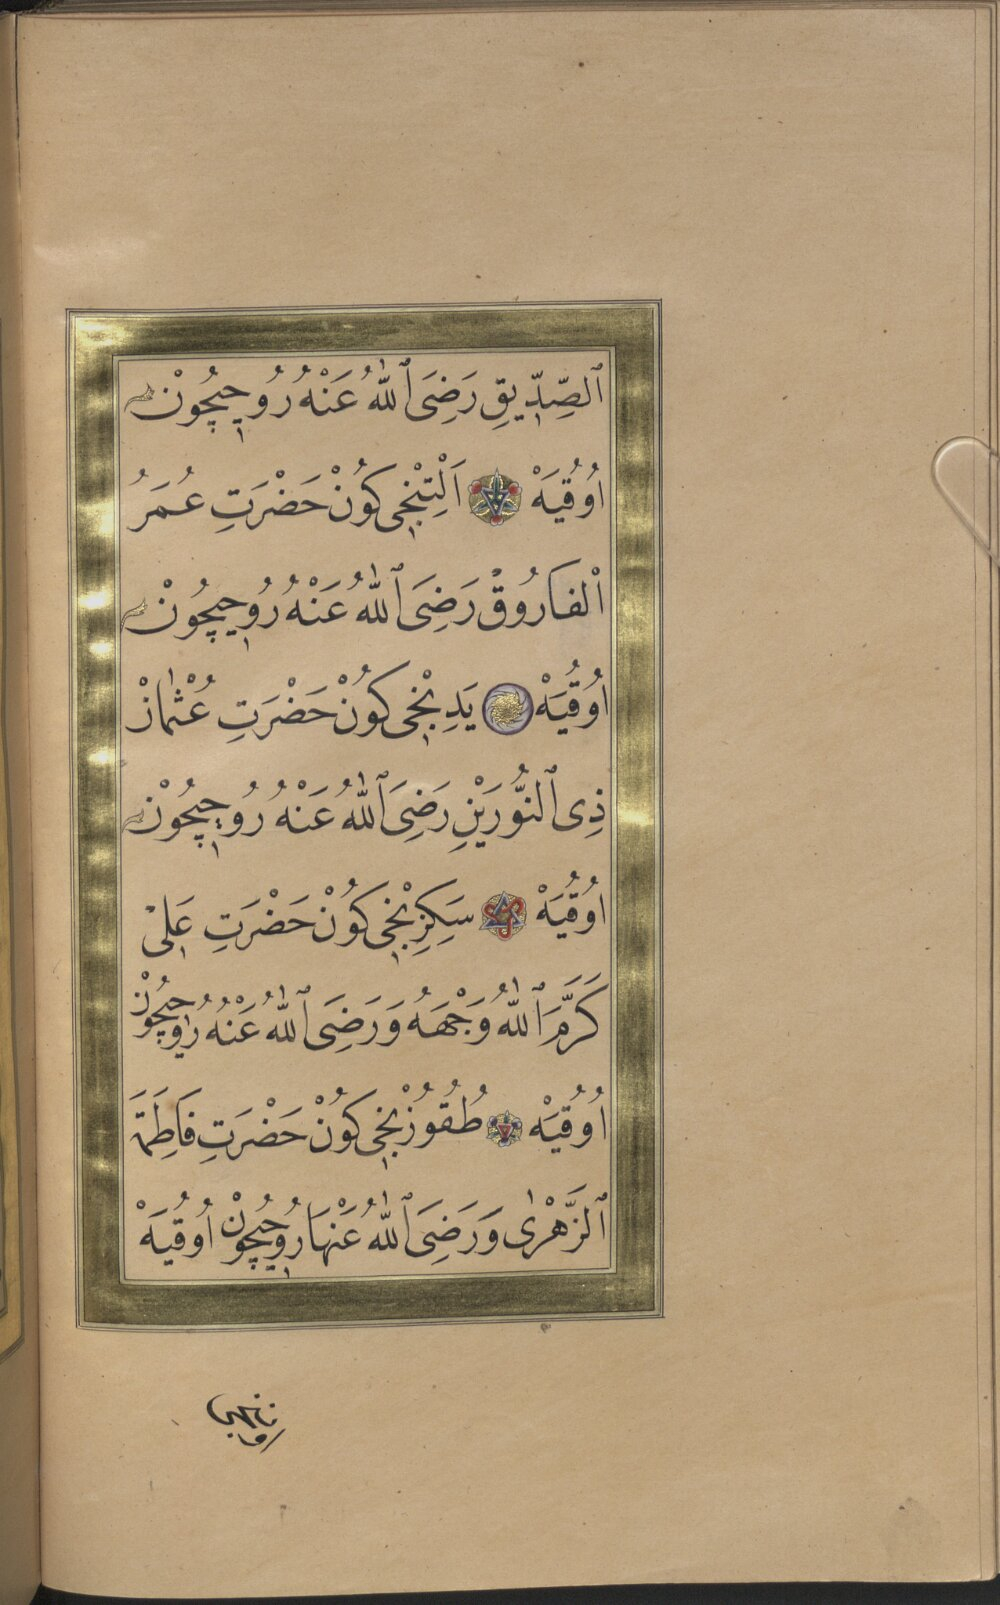 ٱلصِّدِّيقِ رَضِىَ ٱللّٰهُ عَنْهُ رُوحِيچُونْ
اُوقُيَهْ اَلْتِنْجِى كُونْ حَضْرَتِ عُمَرُ
اْلفَارُوقْ رَضِىَ ٱللّٰهُ عَنْهُ رُوحِيچُونْ
اُوقُيَهْ يَدِنْجِى كُونْ حَضْرَتِ عُثْمٰانْ
ذِى ٱلنُّورَيْنِ رَضِىَ ٱللّٰهُ عَنْهُ رُوحِيچُونْ
اُوقُيَهْ سَكِزِنْجِى كُونْ حَضْرَتِ عَلِىْ
كَرَّمَ ٱللّٰهُ وَجْهَهُ وَرَضِىَ ٱللّٰهُ عَنْهُ رُوحِيچُونْ
اُوقُيَهْ طُقُوزُنْجِى كُونْ حَضْرَتِ فَاطِمَةَ
ٱلزَّهْرٰى وَرَضِىَ ٱللّٰهُ عَنْهَا رُوحِيچُونْ اُوقُيَهْ